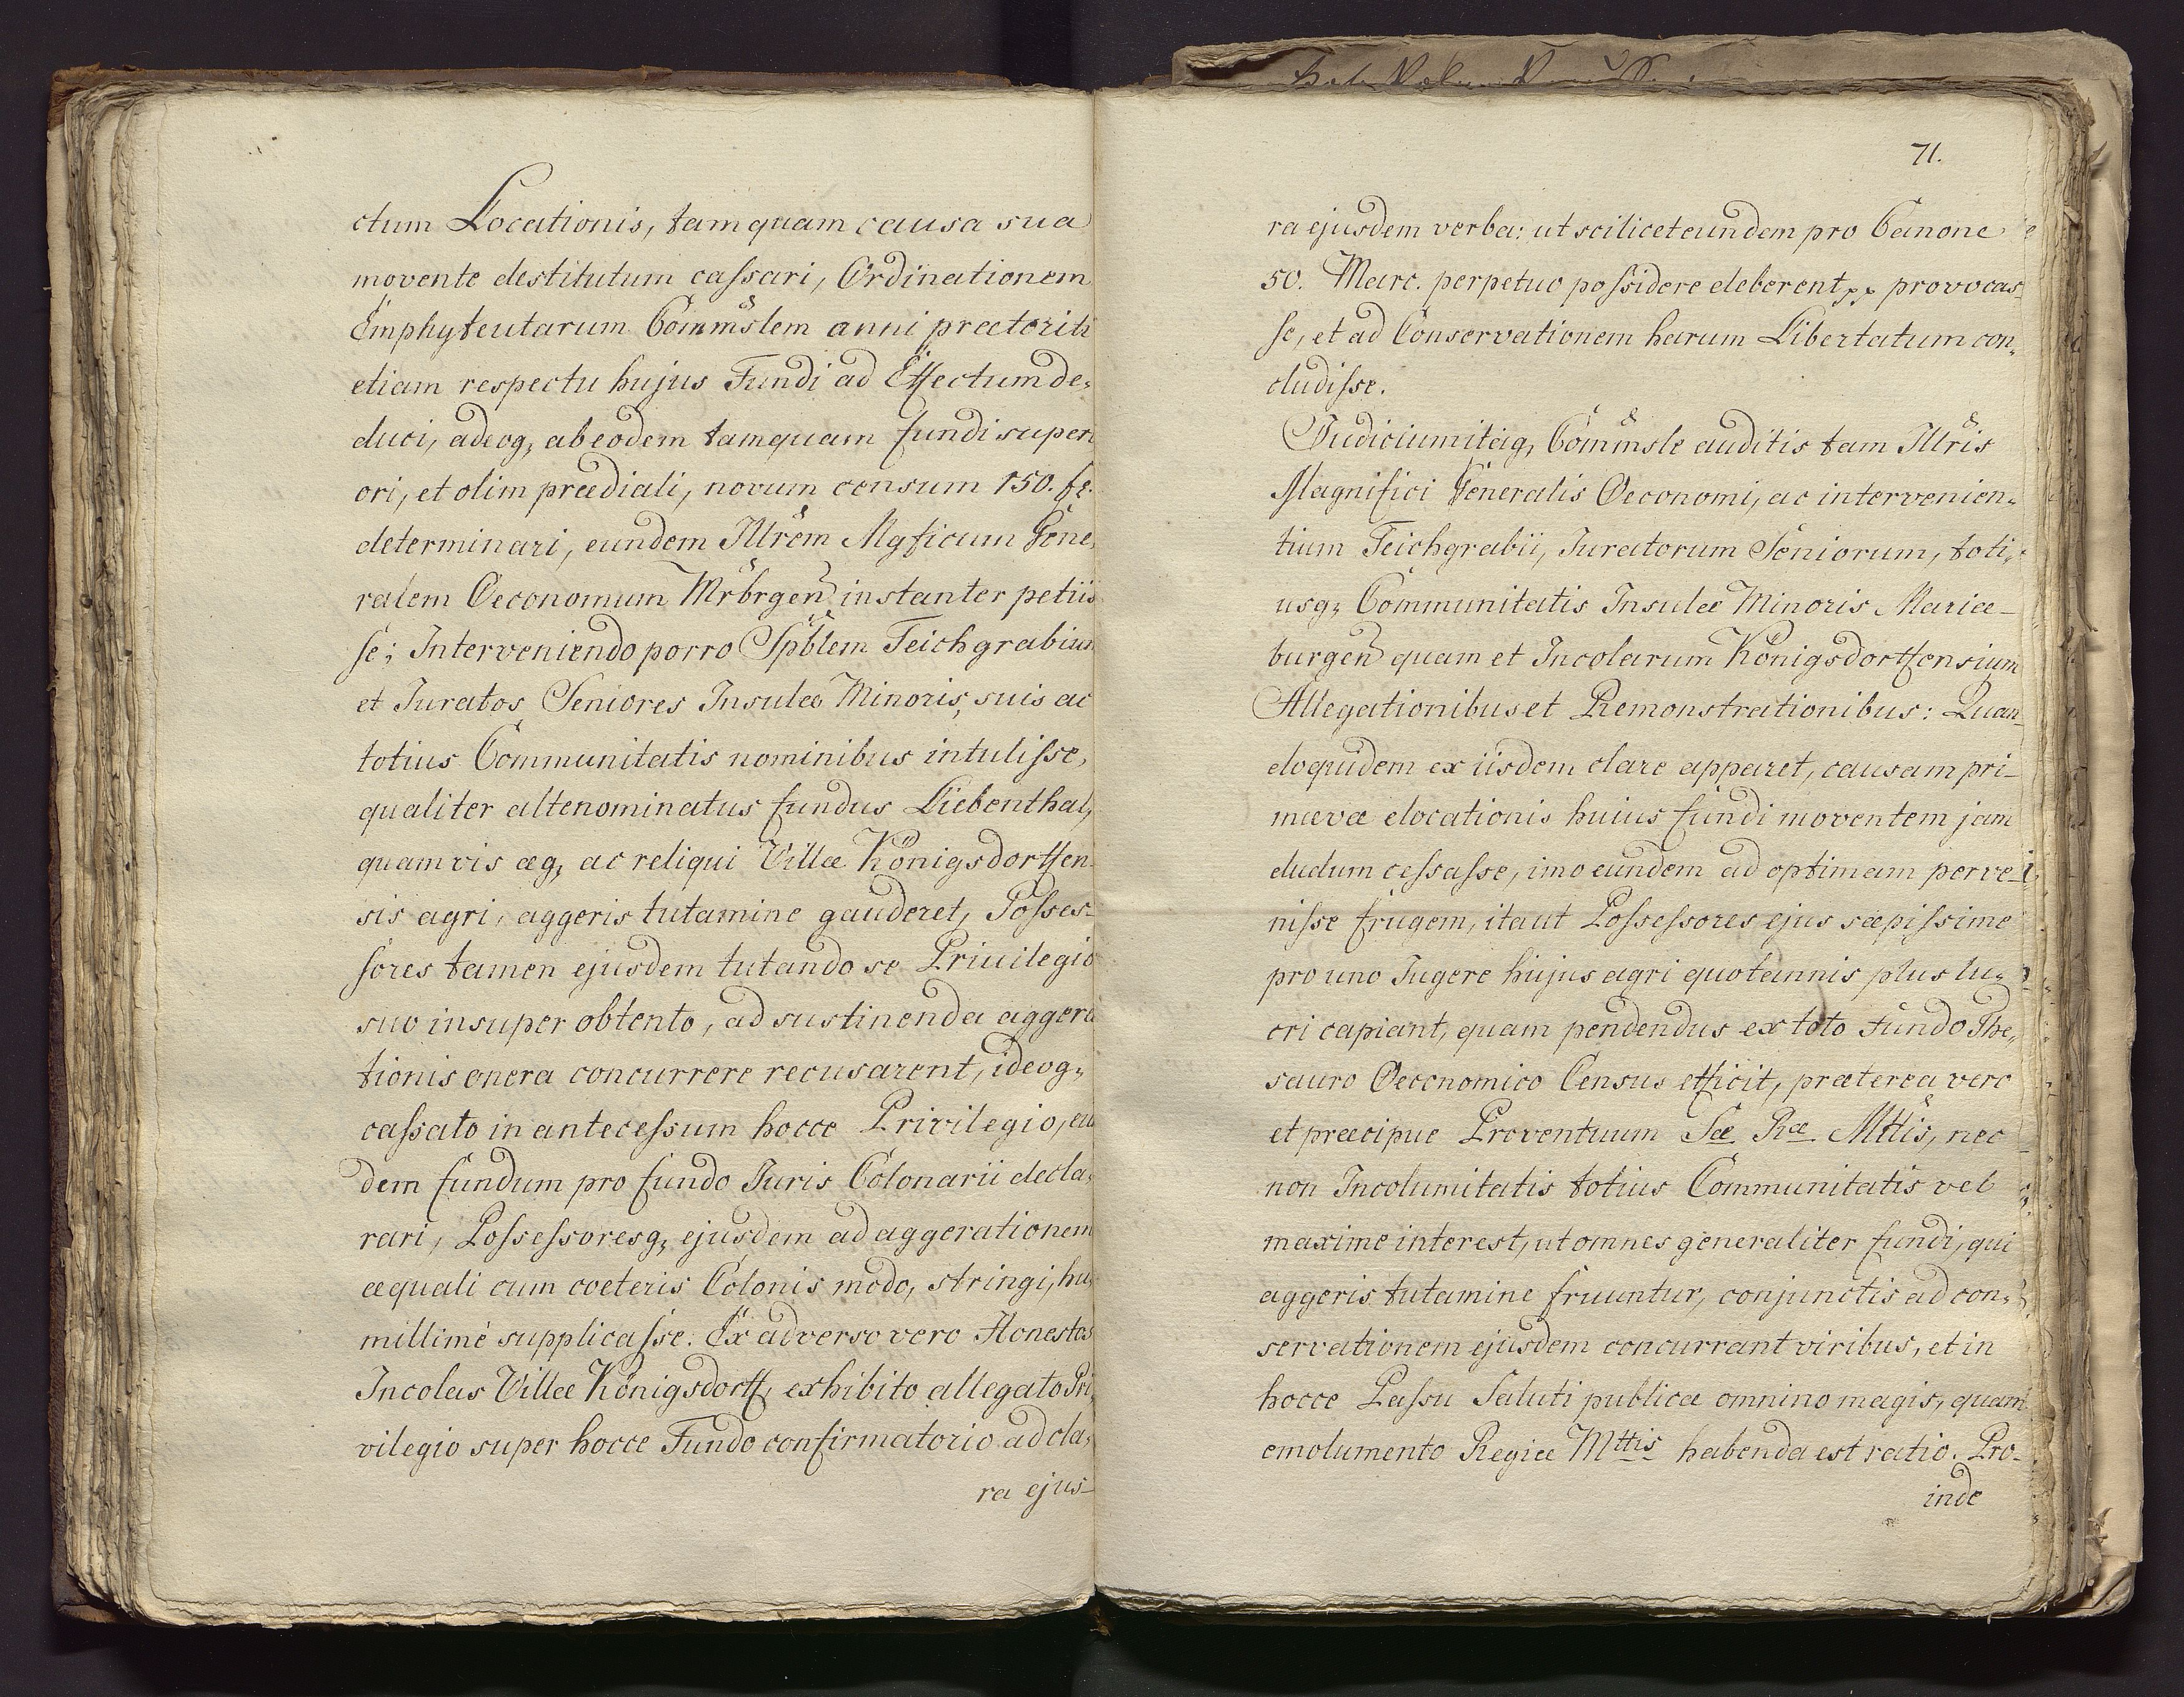 ctum Locationis, tamquam causa sua
movente destitutum cassari, Ordinationem
Emphyteutarum Commslem anni praeteriti
etiam respectu hujus Fundi ad Effectum de,
duci, adeoq, ab eodem tamquam fundi superi
ori, et olim praediali, novum censum 150. fl.
determinari, eundem Illrem Mgficum Gene,
ralem Oeconomum Mrbrgen instanter petiis
se; Interveniendo porro Spblem Teichgrabium
et Juratos Seniores Insulae Minoris, suis ac
totius Communitatis nominibus intulisse,
qualiter altenominatus fundus Liebenthal,
quamvis aeq, ac reliqui Villae Königsdorffen
sis agri, aggeris tutamine gauderet, Posses-
sores tamen ejusdem tutando se Privilegio
suo insuper obtento, ad sustinenda aggera
tionis onera concurrere recusarent, ideoq,
cassato in antecessum hocce Privilegio, eun
dem fundum pro fundo Juris Colonarii decla,
rari, Possessoresq, ejusdem ad aggerationem
aequali cum coeteris Colonis modo, stringi, hu,
millimè supplicasse. Ex adverso vero Honestos
Incolas Villae Königsdorff, exhibito allegato Pri,
vilegio super hocce Fundo confirmatorio ad cla,
ra ejus-
71.
ra ejusdem verba: ut scilicet eundem pro Canone
50. Marc. perpetuo possidere deberent pp provocas-
se, et ad Conservationem harum Libertatum con,
cludisse.
Judicium itaq, Commsle auditis tam Illris
Magnifici Generalis Oeconomi, ac intervenien,
tium Teichgrabii, Juratorum Seniorum, toti,
usq, Communitatis Insulae Minoris Mariae-
burgen quam et Incolarum Königsdorffensium
Allegationibus et Remonstrationibus: Quan-
doquidem ex iisdem clare apparet, causam pri-
maevae elocationis huius fundi moventem jam
dudum cessasse, imo eundem ad optimam perve-
nisse frugem, ita ut Possessores ejus saepissime
pro uno Jugere hujus agri quotannis plus lu,
cri capiant, quam pendendus ex toto Fundo The,
sauro Oeconomico Census efficit, praeterea vero
et praecipue Proventuum Sae Rae Mttis, nec
non Incolumitatis totius Communitatis vel
maxime interest, ut omnes generaliter fundi, qui
aggeris tutamine fruuntur, conjunctis ad con,
servationem ejusdem concurrant viribus, et in
hocce Passu Saluti publicae omnino magis, quam
emolumento Regiae Mttis habenda est ratio. Pro-
inde